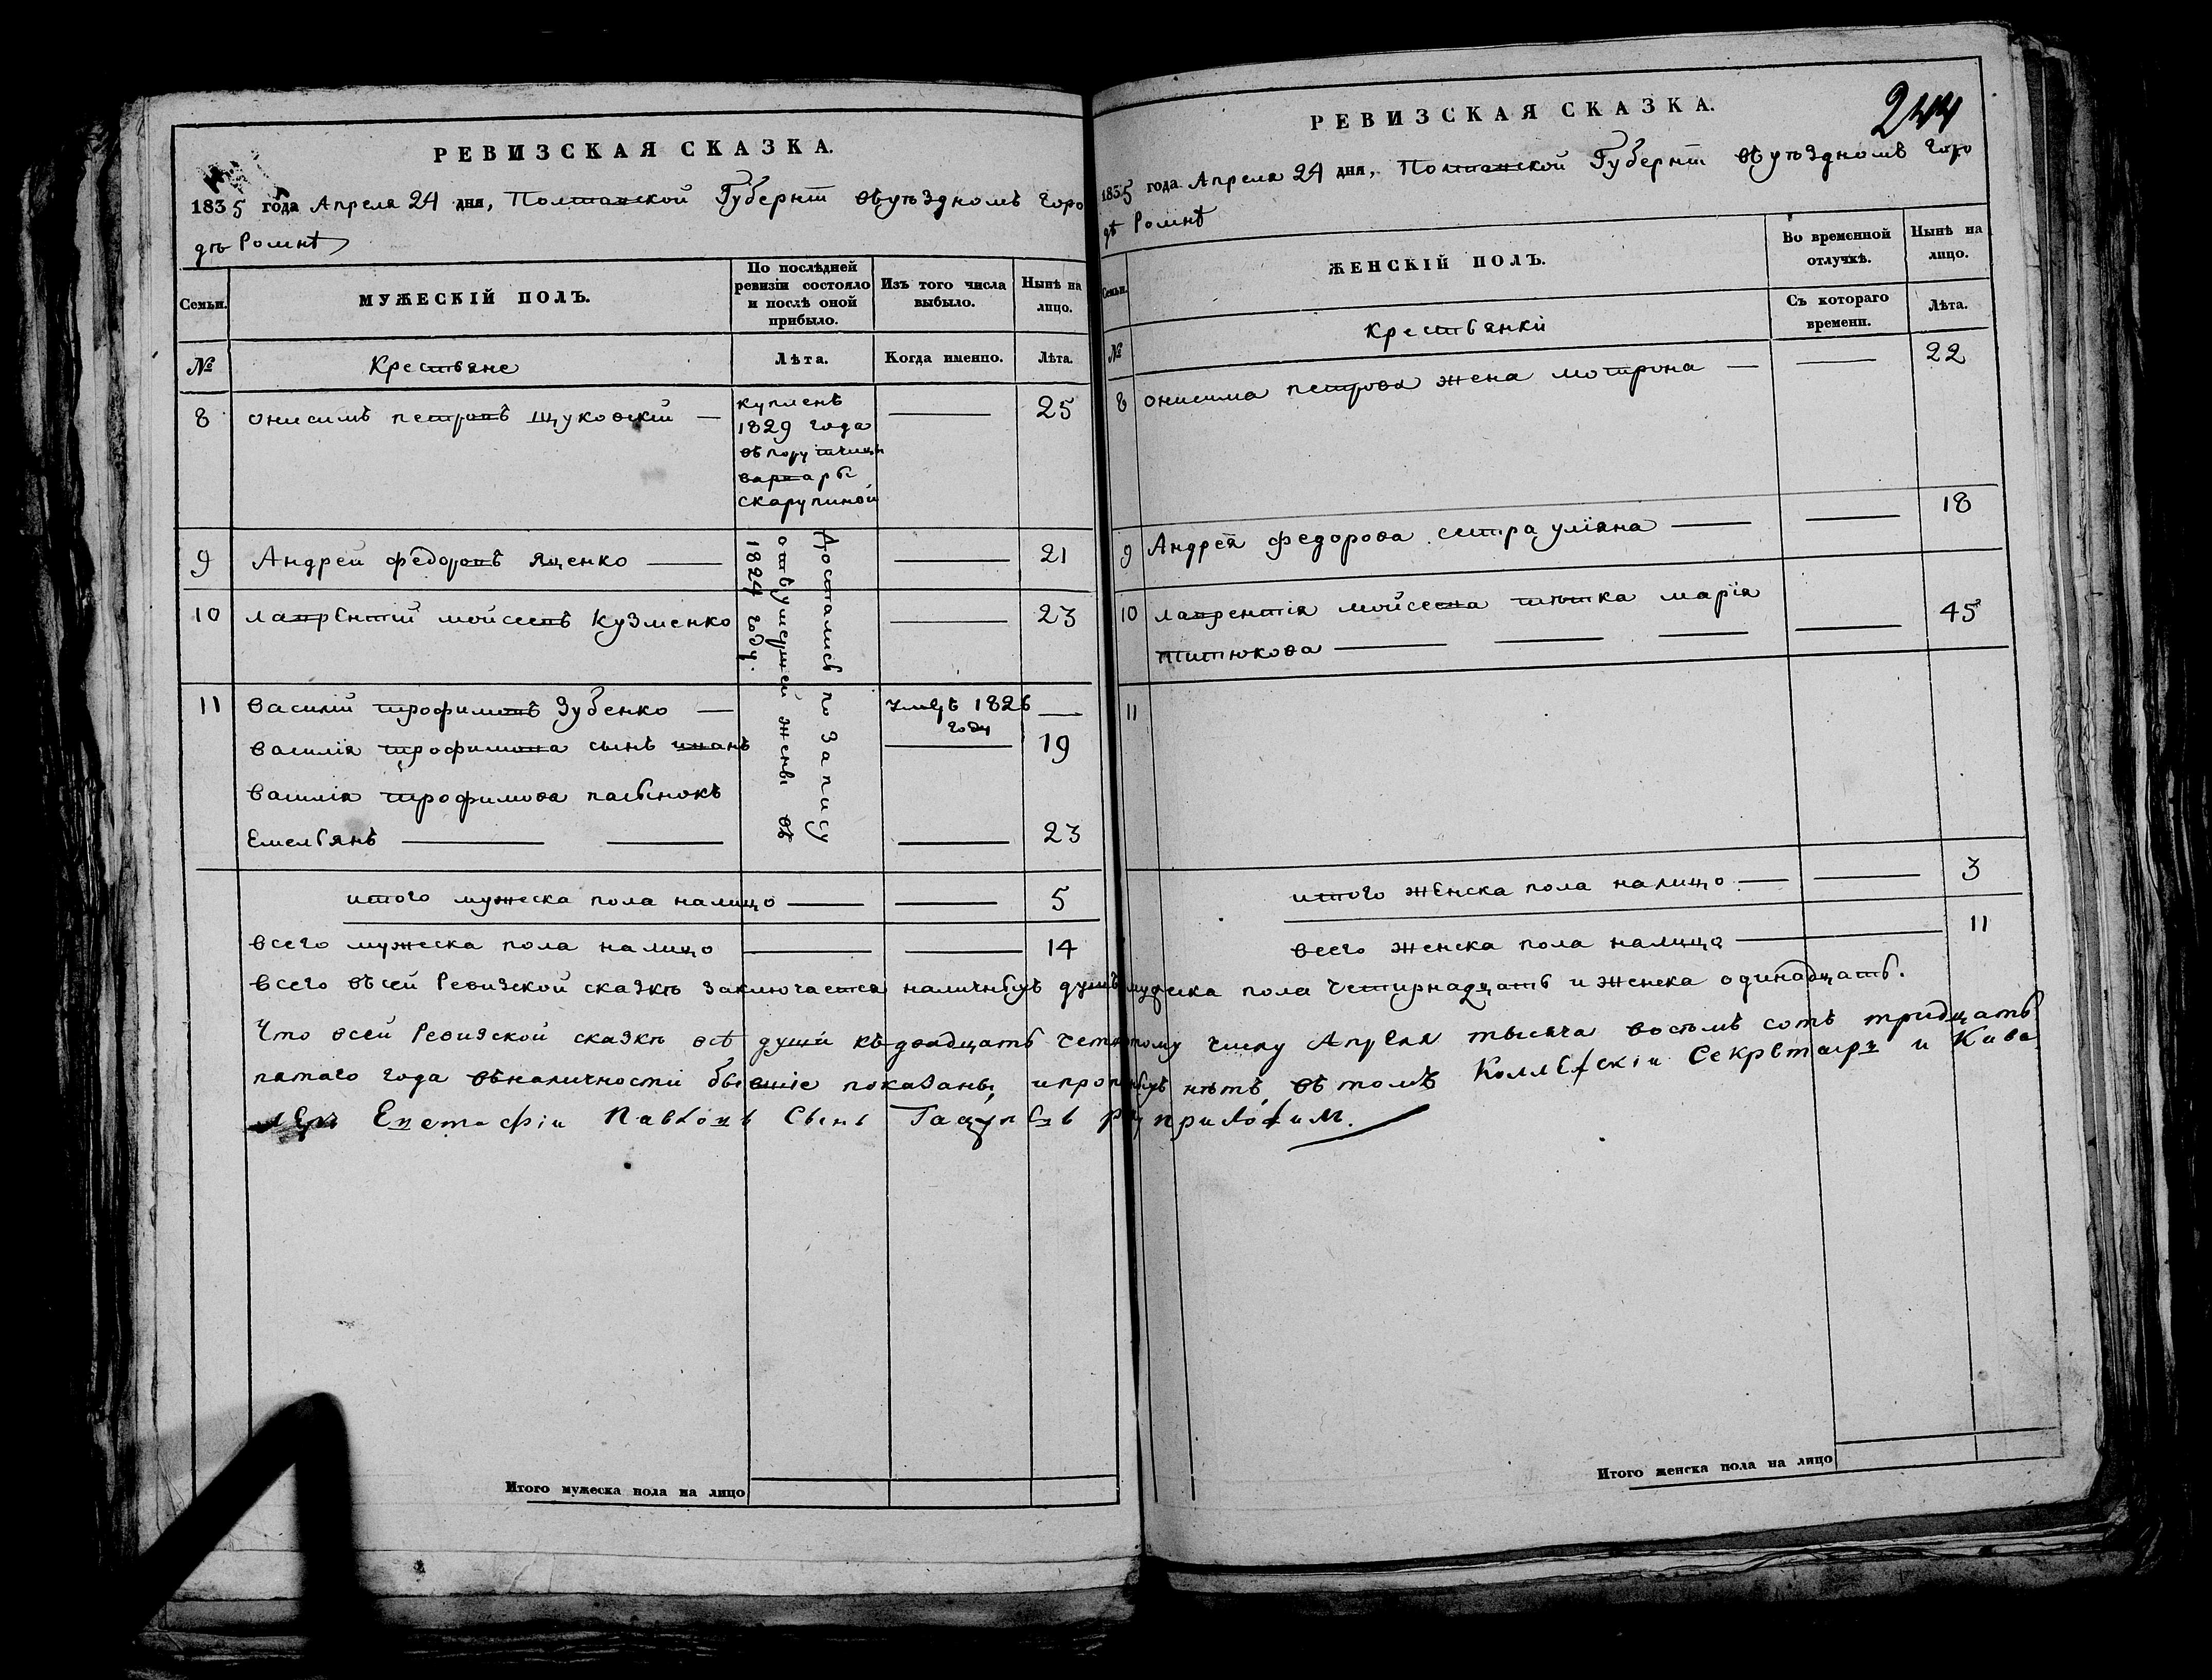 РЕВИЗСКАЯ СКАЗКА.
1835 года Апреля 24 дня, Полтавской Губернѣи въуѣздномъ горо
дѣ Ромнѣ
Семьи.
МУЖЕСКІЙ ПОЛЪ.
По послѣдней ревизіи состояло и послѣ оной прибыло.
Изъ того числа выбыло.
Нынѣ на лицо.
№
Крестьяне
Лѣта.
Когда именно.
Лѣта.
8 онисимъ петровъ щуковскій — 25
купленъ
1829 года
въпорутчици
варвары
скарупиной
9 Андрей федоровъ яценко — 21
10 лаврентій мойсеевъ Кузменко — 23
Достались по запису
отъумершей жены въ
1824 году.
11 василій трофимовъ Зубенко — умеръ 1826 году —
василія трофимова сынъ иванъ — 19
василія трофимова пасынокъ
Емельянъ — 23
итого мужеска пола налицо — 5
всего мужеска пола налицо — 14
РЕВИЗСКАЯ СКАЗКА.
244
1835 года Апреля 24 дня, Полтавской Губернѣи въуѣздномъ горо
дѣ Ромнѣ
Семьи.
ЖЕНСКІЙ ПОЛЪ.
Во временной отлучкѣ.
Нынѣ на лицо.
№
Крестьянки
Съ котораго времени.
Лѣта.
8 онисима петрова жена мотрона — 22
9 Андрея федорова сестра уліяна — 18
10 лаврентія мойсеева тютка марія
титюкова — 45
11
итого женска пола налицо — 3
всего женска пола налицо — 11
всего въсей Ревизской сказкѣ заключается наличныхъ душъ мужеска пола четирнадцать и женска одинадцать.
Что всей Ревизской сказкѣ всѣ души къ двадцать четвертому числу Апреля тысяча восемъ сотъ тридцать
пятаго года въналичности бывшіе показаны, ипрописныхъ нѣтъ, въ томъ Коллежскіи Секретаръ и Кава
леръ Евстафіи Павловъ Сынъ руку приложилъ.
Итого мужеска пола на лицо
Итого женска пола на лицо